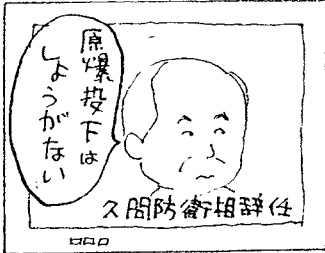 原爆投下は
しょうがない
久間防衛相辞任